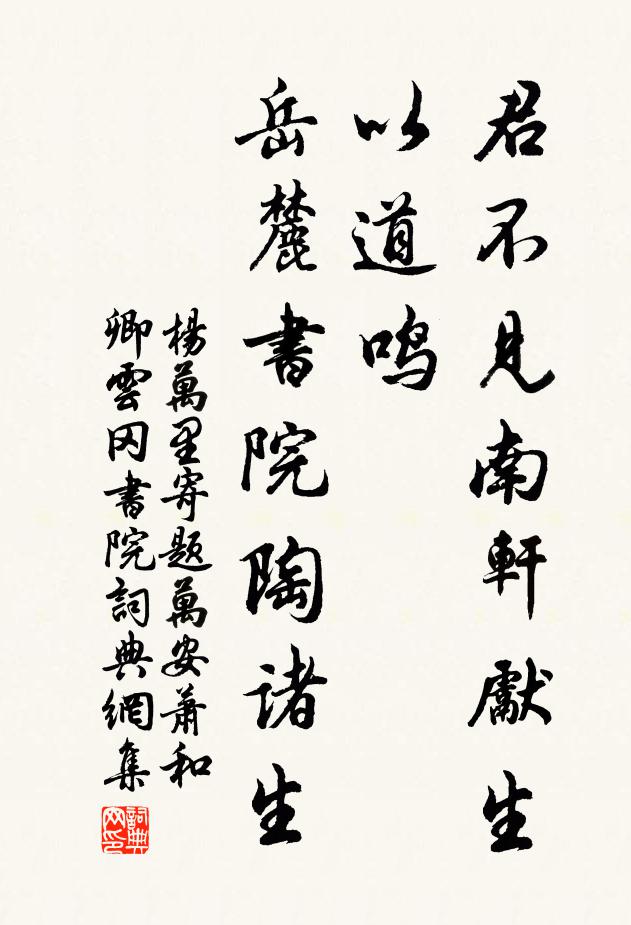 君不見南軒獻生
以道鳴
岳麓書院陶諸生
楊萬里寄題萬安蕭和
卿雲冈書院詞典網集
詞典
网印